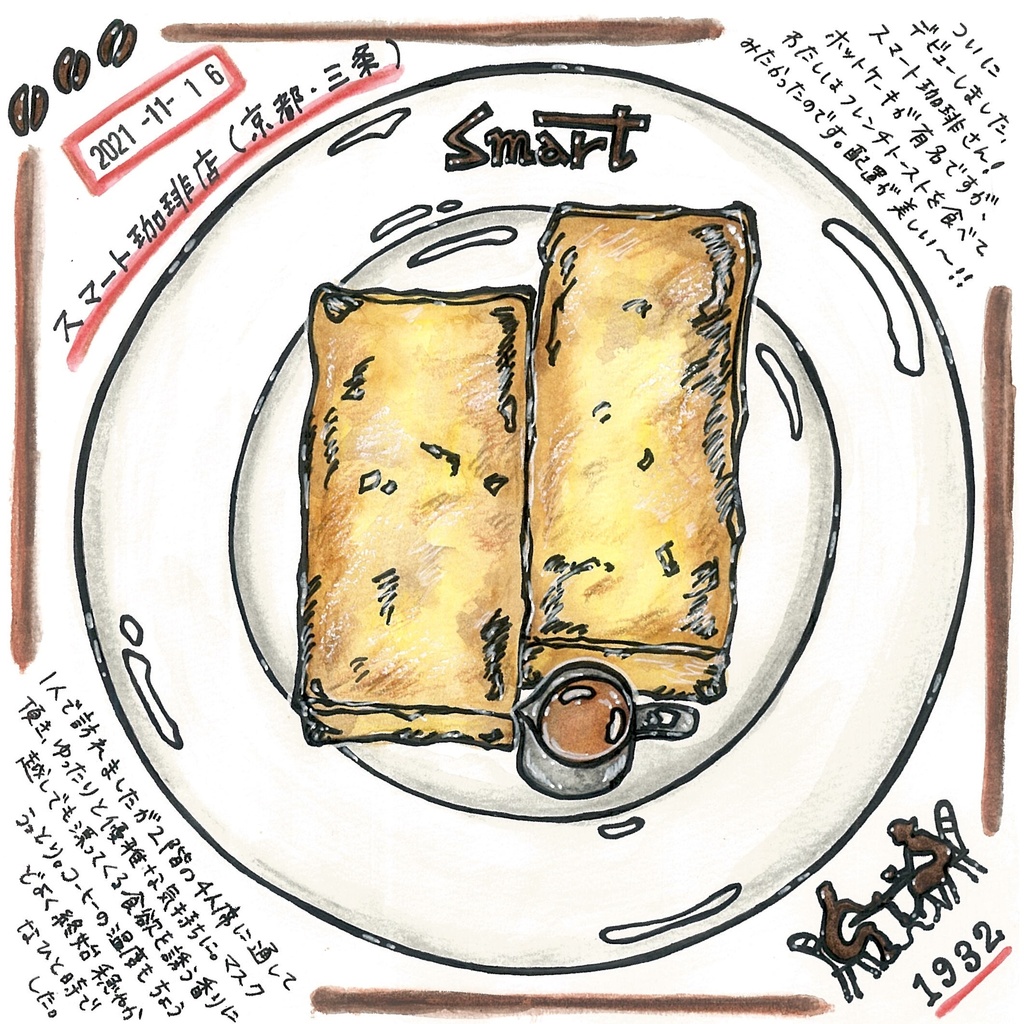 2021-11-16
スマート珈琲店(京都・三条)
Smart
ついに
デビューしました、
スマート珈琲さん!
ホットケーキが有名ですが、
わたしはフレンチトーストを食べて
みたかったのです。配置が美しい〜!!
1人で訪れましたが2階の4人席に通して
頂き、ゆったりと優雅な気持ちに。マスク
越しでも漂ってくる食欲を誘う香りに
うっとり。コーヒーの温度もちょう
どよく終始穏やか
なひと時で
した。
1932